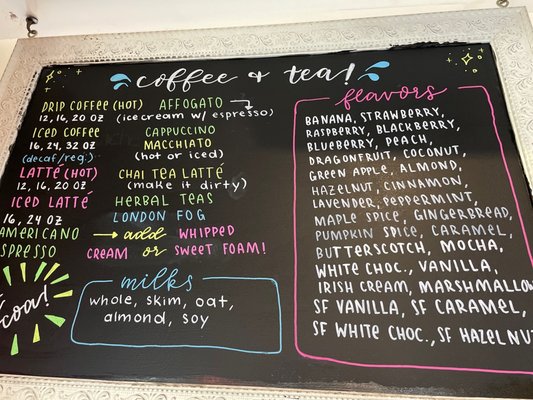 coffee + tea!
DRIP COFFEE (HOT)
12, 16, 20 OZ
ICED COFFEE
16, 24, 32 OZ
(decaf/reg.)
LATTÉ (HOT)
12, 16, 20 OZ
ICED LATTÉ
16, 24 OZ
AMERICANO
SPRESSO
AFFOGATO
(icecream w/ espresso)
CAPPUCCINO
MACCHIATO
(hot or iced)
CHAI TEA LATTÉ
(make it dirty)
HERBAL TEAS
LONDON FOG
add WHIPPED
CREAM or SWEET FOAM!
coa!
milks
whole, skim, oat,
almond, soy
flavors
BANANA, STRAWBERRY,
RASPBERRY, BLACKBERRY,
BLUEBERRY, PEACH,
DRAGONFRUIT, COCONUT,
GREEN APPLE, ALMOND,
HAZELNUT, CINNAMON,
LAVENDER, PEPPERMINT,
MAPLE SPICE, GINGERBREAD,
PUMPKIN SPICE, CARAMEL,
BUTTERSCOTCH, MOCHA,
WHITE CHOC., VANILLA,
IRISH CREAM, MARSHMALLOW
SF VANILLA, SF CARAMEL,
SF WHITE CHOC., SF HAZELNUT